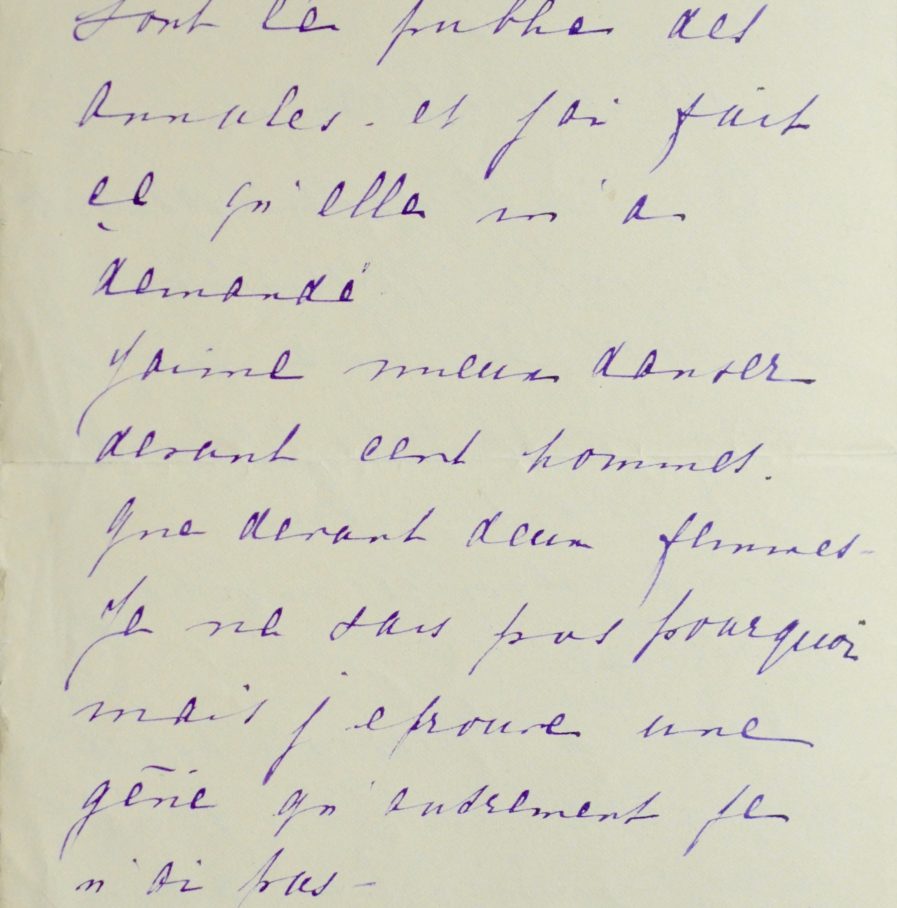 sont le public des
annales. et j'ai fait
ce qu'elle m'a
demandé
J'aime mieux danser
devant cent hommes.
que devant deux femmes -
Je ne sais pas pourquoi
mais j'eprouve une
gêne qu'autrement je
n'ai pas -